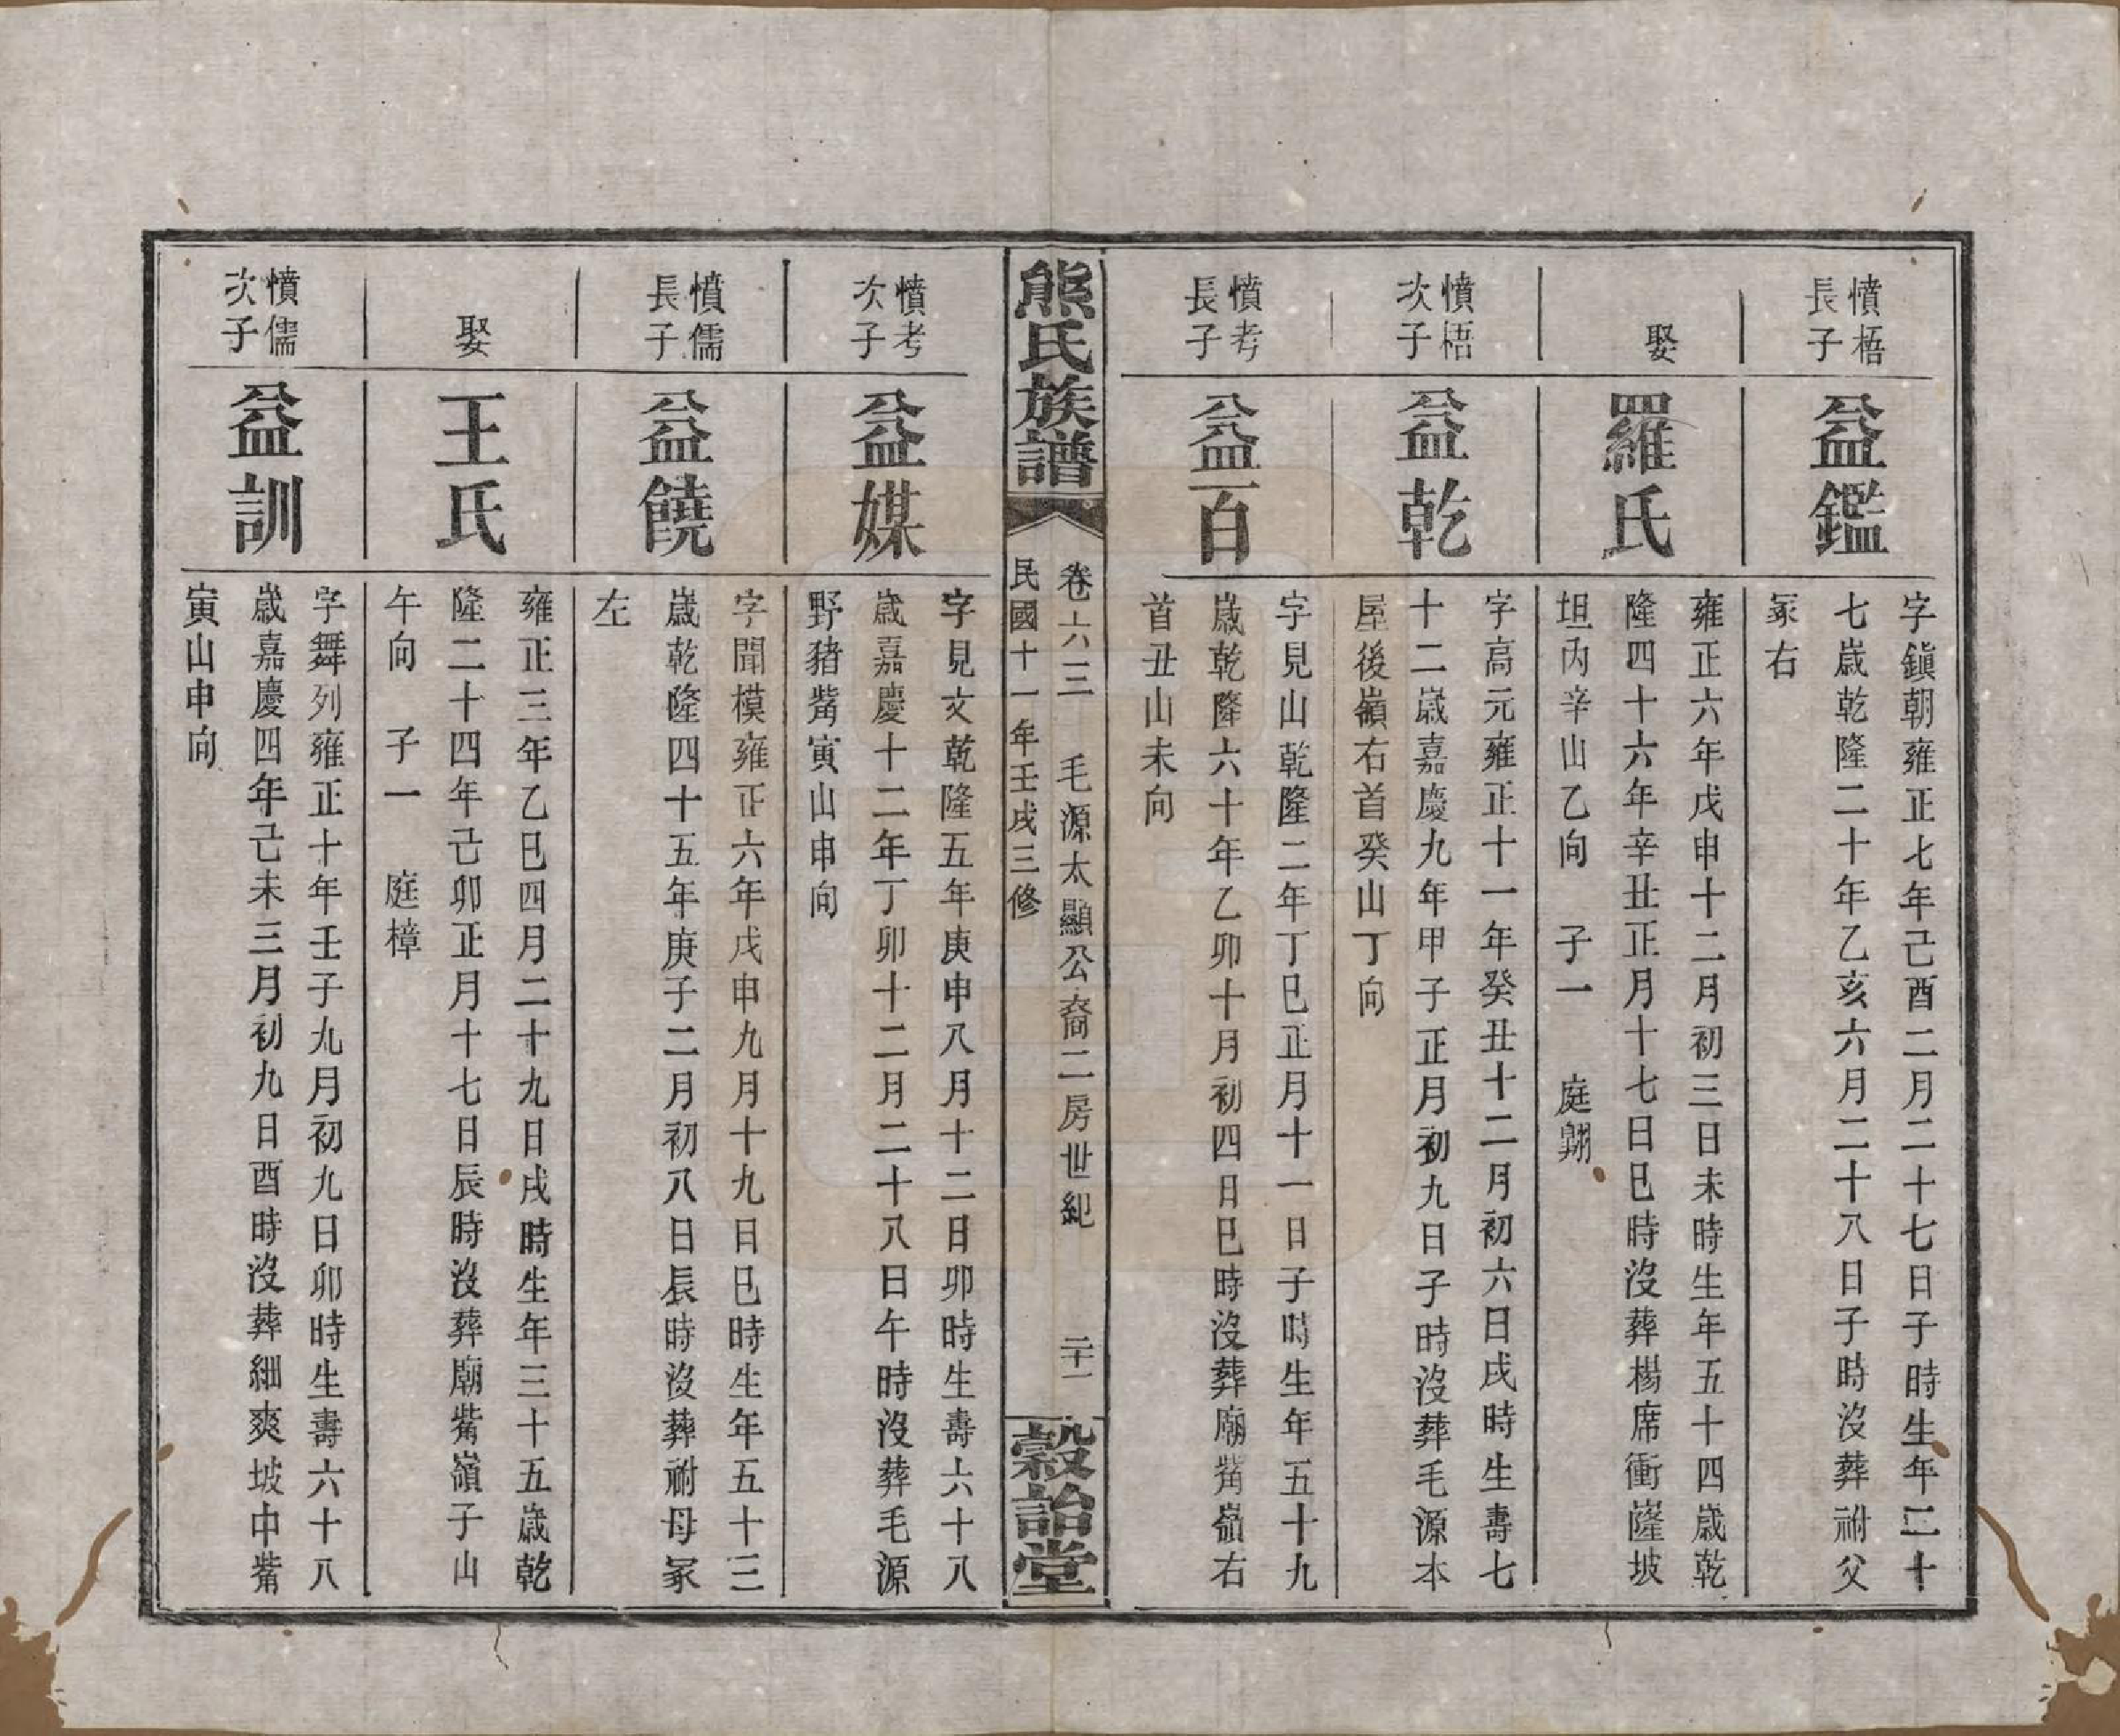 憤梧
長子
益鑑
字鎭朝雍正七年己酉二月二十七日子時生年二十
七歲乾隆二十年乙亥六月二十八日子時沒葬祔父
冢右
娶
羅氏
雍正六年戊申十二月初三日未時生年五十四歲乾
隆四十六年辛丑正月十七日巳時沒葬楊席衝窿坡
坦內辛山乙向　子一　庭翾
憤梧
次子
益乾
字高元雍正十一年癸丑十二月初六日戌時生壽七
十二歲嘉慶九年甲子正月初九日子時沒葬毛源本
屋後嶺右首癸山丁向
憤考
長子
益百
字見山乾隆二年丁巳正月十一日子時生年五十九
歲乾隆六十年乙卯十月初四日巳時沒葬廟觜嶺右
首丑山未向
熊氏族譜
卷六三　毛源太顯公裔二房世紀　二十一
民國十一年壬戌三修
穀詒堂
憤考
次子
益媒
字見文乾隆五年庚申八月十二日卯時生壽六十八
歲嘉慶十二年丁卯十二月二十八日午時沒葬毛源
野豬觜寅山申向
憤儒
長子
益饒
字聞模雍正六年戊申九月十九日巳時生年五十三
歲乾隆四十五年庚子二月初八日辰時沒葬祔母冢
左
娶
王氏
雍正三年乙巳四月二十九日戌時生年三十五歲乾
隆二十四年己卯正月十七日辰時沒葬廟觜嶺子山
午向　子一　庭樟
憤儒
次子
益訓
字舞列雍正十年壬子九月初九日卯時生壽六十八
歲嘉慶四年己未三月初九日酉時沒葬細爽坡中觜
寅山申向